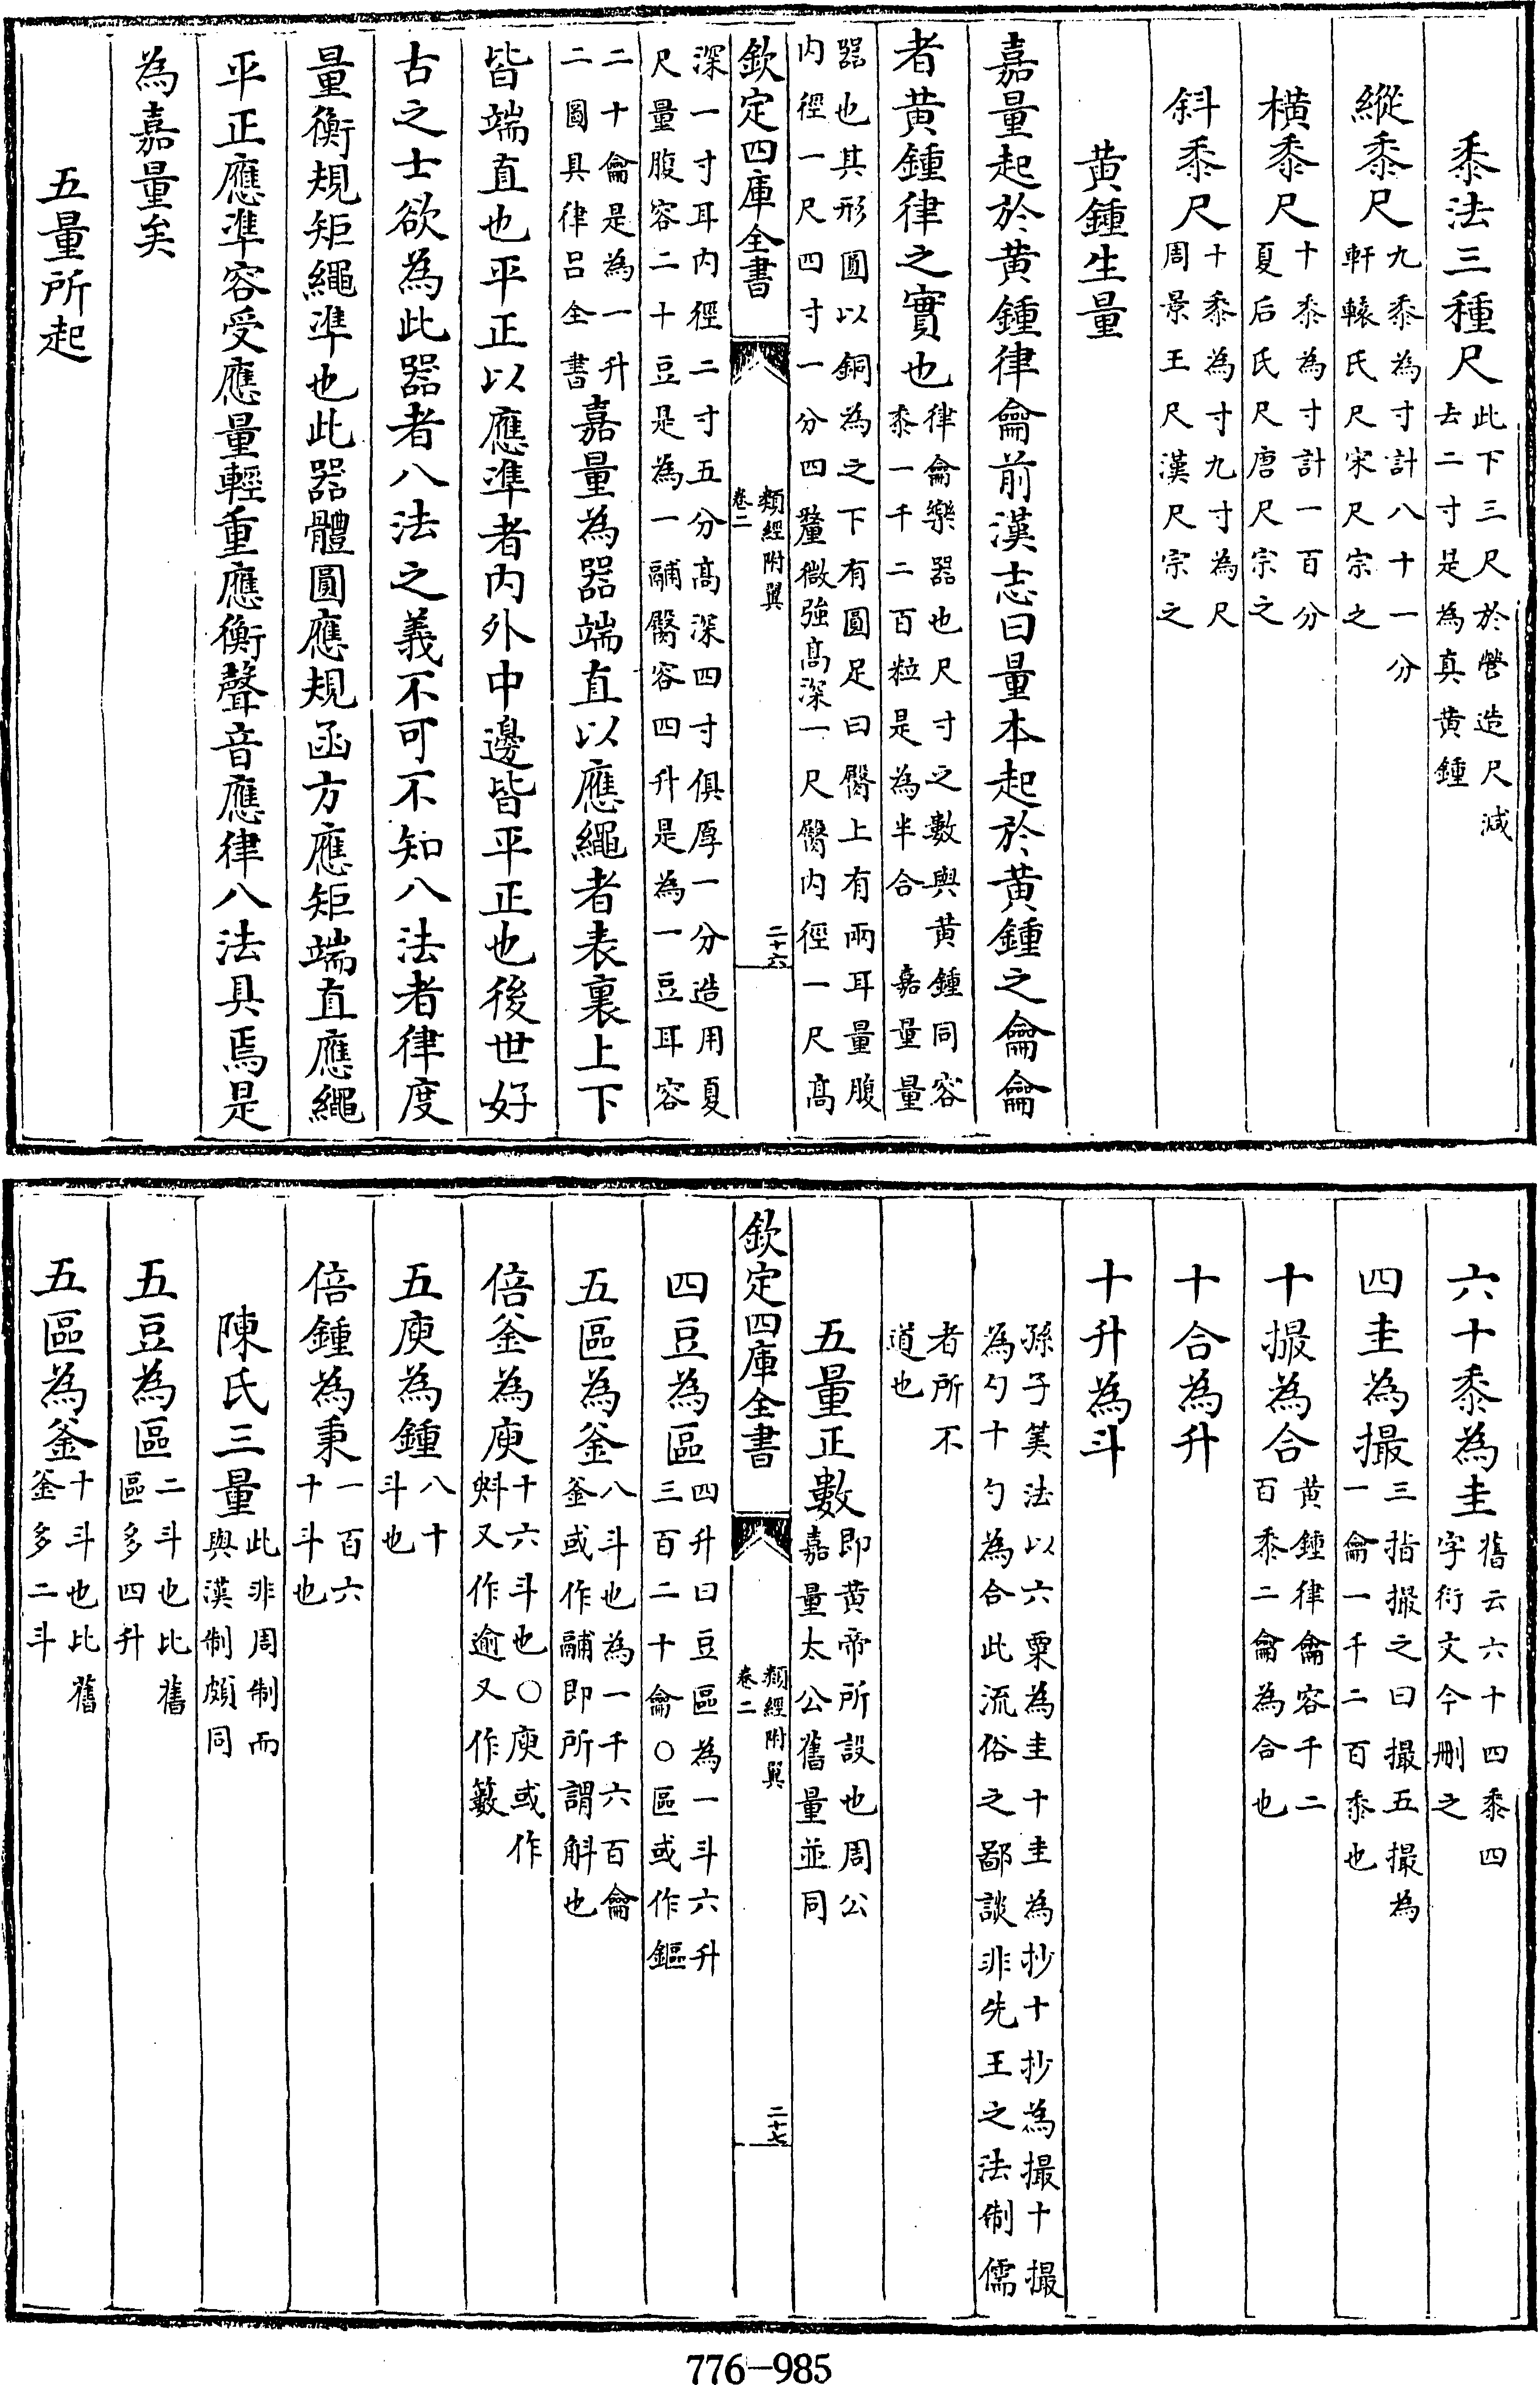 黍法三種尺此下三尺於營造尺減去二寸是為真黄鍾
縱黍尺九黍為寸計八十一分軒轅氏尺宋尺宗之
橫黍尺十黍為寸計一百分夏后氏尺唐尺宗之
斜黍尺十黍為寸九寸為尺周景王尺漢尺宗之
黄鍾生量
嘉量起於黄鍾律龠前漢志曰量本起於黄鍾之龠龠
者黄鍾律之實也律龠樂器也尺寸之數與黄鍾同容黍一千二百粒是為半合 嘉量量
器也其形圓以銅為之下有圓足曰臋上有兩耳量腹内徑一尺四寸一分四釐微強高深一尺臋内徑一尺高
欽定四庫全書 類經附翼 卷二 二十六
深一寸耳内徑二寸五分高深四寸俱厚一分造用夏尺量腹容二十豆是為一鬴臋容四升是為一豆耳容
二十龠是為一升二圖具律呂全書嘉量為器端直以應繩者表裏上下
皆端直也平正以應準者内外中邊皆平正也後世好
古之士欲為此器者八法之義不可不知八法者律度
量衡規矩繩準也此器體圓應規函方應矩端直應繩
平正應準容受應量輕重應衡聲音應律八法具焉是
為嘉量矣
五量所起
六十黍為圭舊云六十四黍四字衍文今刪之
四圭為撮三指撮之曰撮五撮為一龠一千二百黍也
十撮為合黄鍾律龠容千二百黍二龠為合也
十合為升
十升為斗
孫子筭法以六粟為圭十圭為抄十抄為撮十撮為勺十勺為合此流俗之鄙談非先王之法制儒
者所不道也
五量正數即黄帝所設也周公嘉量太公舊量並同
欽定四庫全書 類經附翼 卷二 二十七
四豆為區四升曰豆區為一斗六升三百二十龠○區或作鏂
五區為釜八斗也為一千六百龠釜或作鬴即所謂斛也
倍釜為庾十六斗也○庾或作㪷又作逾又作籔
五庾為鍾八十斗也
倍鍾為秉一百六十斗也
陳氏三量此非周制而與漢制頗同
五豆為區二斗也比舊區多四升
五區為釜十斗也比舊釜多二斗
776-985